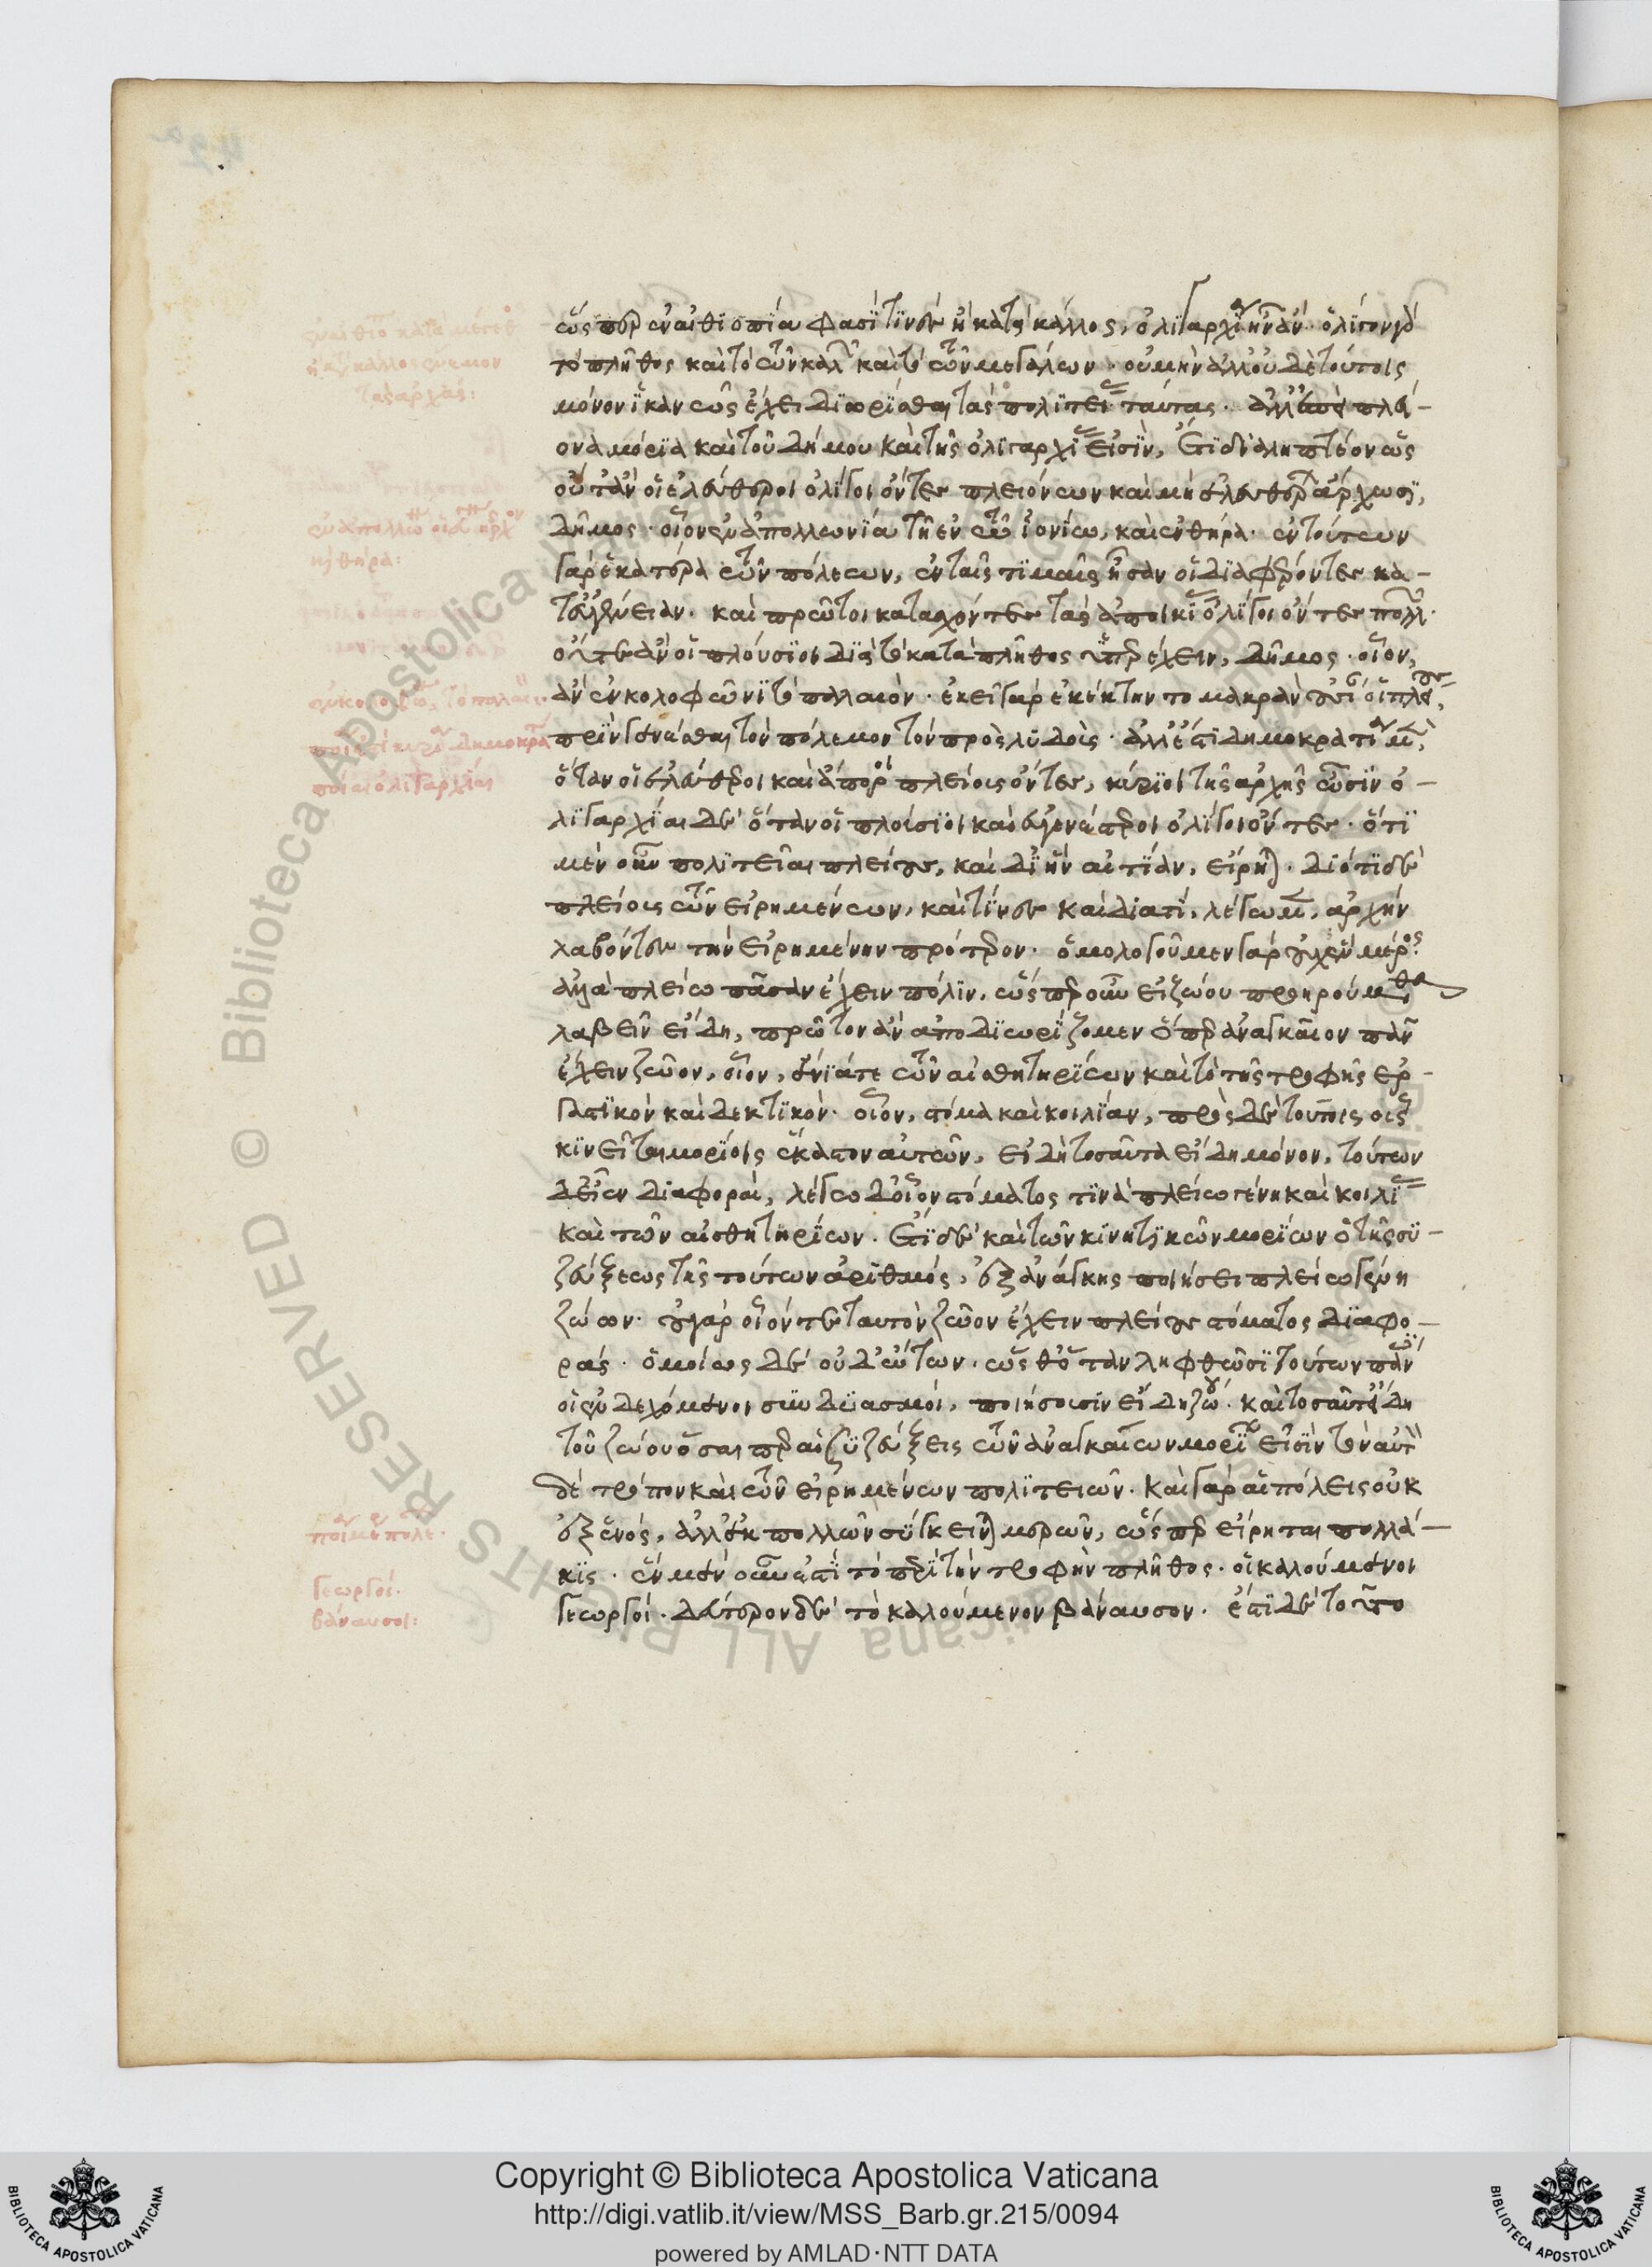 ὥσπερ ἐν αἰθιοπία φασί τινες ἢ κατὰ κάλλος, ὀλιγαρχία ἦν ἄν· ὀλίγον γὰρ
τὸ πλῆθος καὶ τὸ τῶν καλῶν καὶ τὸ τῶν μεγάλων· οὐ μὴν ἀλλ' οὐδὲ τούτοις
μόνον ἱκανῶς ἔχει διωρίσθαι τὰς πολιτείας ταύτας· ἀλλ' ἐπεὶ πλεί-
ονα μόρια καὶ τοῦ δήμου καὶ τῆς ὀλιγαρχίας εἰσίν, ἔτι διαληπτέον ὡς
οὔτ' ἂν οἱ ἐλεύθεροι ὀλίγοι ὄντες πλειόνων καὶ μὴ ἐλευθέρων ἄρχωσι,
δῆμος· οἷον ἐν ἀπολλωνία τῆ ἐν τῶ ἰονίω, καὶ ἐν θήρα· ἐν τούτων
γὰρ ἑκατέρα τῶν πόλεων, ἐν ταῖς τιμαῖς ἦσαν οἱ διαφέροντες κα-
τ' εὐγένειαν· καὶ πρῶτοι κατασχόντες τὰς ἀποικίας ὀλίγοι ὄντες πολλῶν·
οὔτε ἂν οἱ πλούσιοι διὰ τὸ κατὰ πλῆθος ὑπερέχειν, δῆμος· οἷον,
ἂν ἐν κολοφῶνι τὸ παλαιόν· ἐκεῖ γὰρ ἐκέκτηντο μακρὰν οὐσίαν οἱ πλείους,
πρὶν γενέσθαι τὸν πόλεμον τὸν πρὸς λυδούς· ἀλλ' ἔστι δημοκρατία μὲν,
ὅταν οἱ ἐλεύθεροι καὶ ἄποροι πλείους ὄντες, κύριοι τῆς ἀρχῆς ὦσιν ὀ-
λιγαρχία δὲ ὅταν οἱ πλούσιοι καὶ εὐγενέστεροι ὀλίγοι ὄντες· ὅτι
μὲν οὖν πολιτεῖαι πλείους, καὶ δι' ἣν αἰτίαν, εἴρηται· διότι δὲ
πλείους τῶν εἰρημένων, καὶ τίνες καὶ διατί, λέγωμεν, ἀρχὴν
λαβόντες τὴν εἰρημένην πρότερον· ὁμολογοῦμεν γὰρ οὐχ ἓν μέρος
ἀλλὰ πλείω πᾶσαν ἔχειν πόλιν, ὥσπερ οὖν εἰ ζώου προηρούμεθα
λαβεῖν εἴδη, πρῶτον ἂν ἀποδιωρίζομεν ὅπερ ἀναγκαῖον πᾶν
ἔχειν ζῶον, οἷον, ἔνιά τε τῶν αἰσθητηρίων καὶ τὸ τῆς τροφῆς ἐρ-
γαστικὸν καὶ δεκτικὸν· οἷον, στόμα καὶ κοιλίαν, πρὸς δὲ τούτοις οἷς
κινεῖται μορίοις ἕκαστον αὐτῶν, εἰ δὴ τοσαῦτα εἴδη μόνον, τούτων
δ' εἶεν διαφοραί, λέγω δ' οἷον στόματος τινὰ πλείω γένη καὶ κοιλίας
καὶ τῶν αἰσθητηρίων· ἔτι δὲ καὶ τῶν κινητικῶν μορίων ὁ τῆς συ-
ζεύξεως τῆς τούτων ἀριθμός, ἐξ ἀνάγκης ποιήσει πλείω γένη
ζώων· οὐ γὰρ οἷόν τε ταυτὸν ζῶον ἔχειν πλείους στόματος διαφο-
ράς· ὁμοίως δὲ οὐδ' ὤτων· ὥσθ' ὅταν ληφθῶσι τούτων πάντες
οἱ ἐνδεχόμενοι συνδυασμοί, ποιήσουσιν εἴδη ζώου· καὶ τοσαῦτ' εἴδη
τοῦ ζώου ὅσαι περ αἱ συζεύξεις τῶν ἀναγκαίων μορίων εἰσὶν τὸν αὐτὸν
δὲ τρόπον καὶ τῶν εἰρημένων πολιτειῶν· καὶ γὰρ αἱ πόλεις οὐκ
ἐξ ἑνός, ἀλλ' ἐκ πολλῶν σύγκεινται μερῶν, ὥσπερ εἴρηται πολλά-
κις· ἓν μὲν οὖν ἐστὶ τὸ περὶ τὴν τροφὴν πλῆθος· οἱ καλούμενοι
γεωργοί· δεύτερον δὲ τὸ καλούμενον βάναυσον· ἔστι δὲ τοῦτο
γεωργοί·
βάναυσοι:
Copyright © Biblioteca Apostolica Vaticana
http://digi.vatlib.it/view/MSS_Barb.gr.215/0094
powered by AMLAD·NTT DATA
BIBLIOTECA APOSTOLICA VATICANA
BIBLIOTECA APOSTOLICA VATICANA